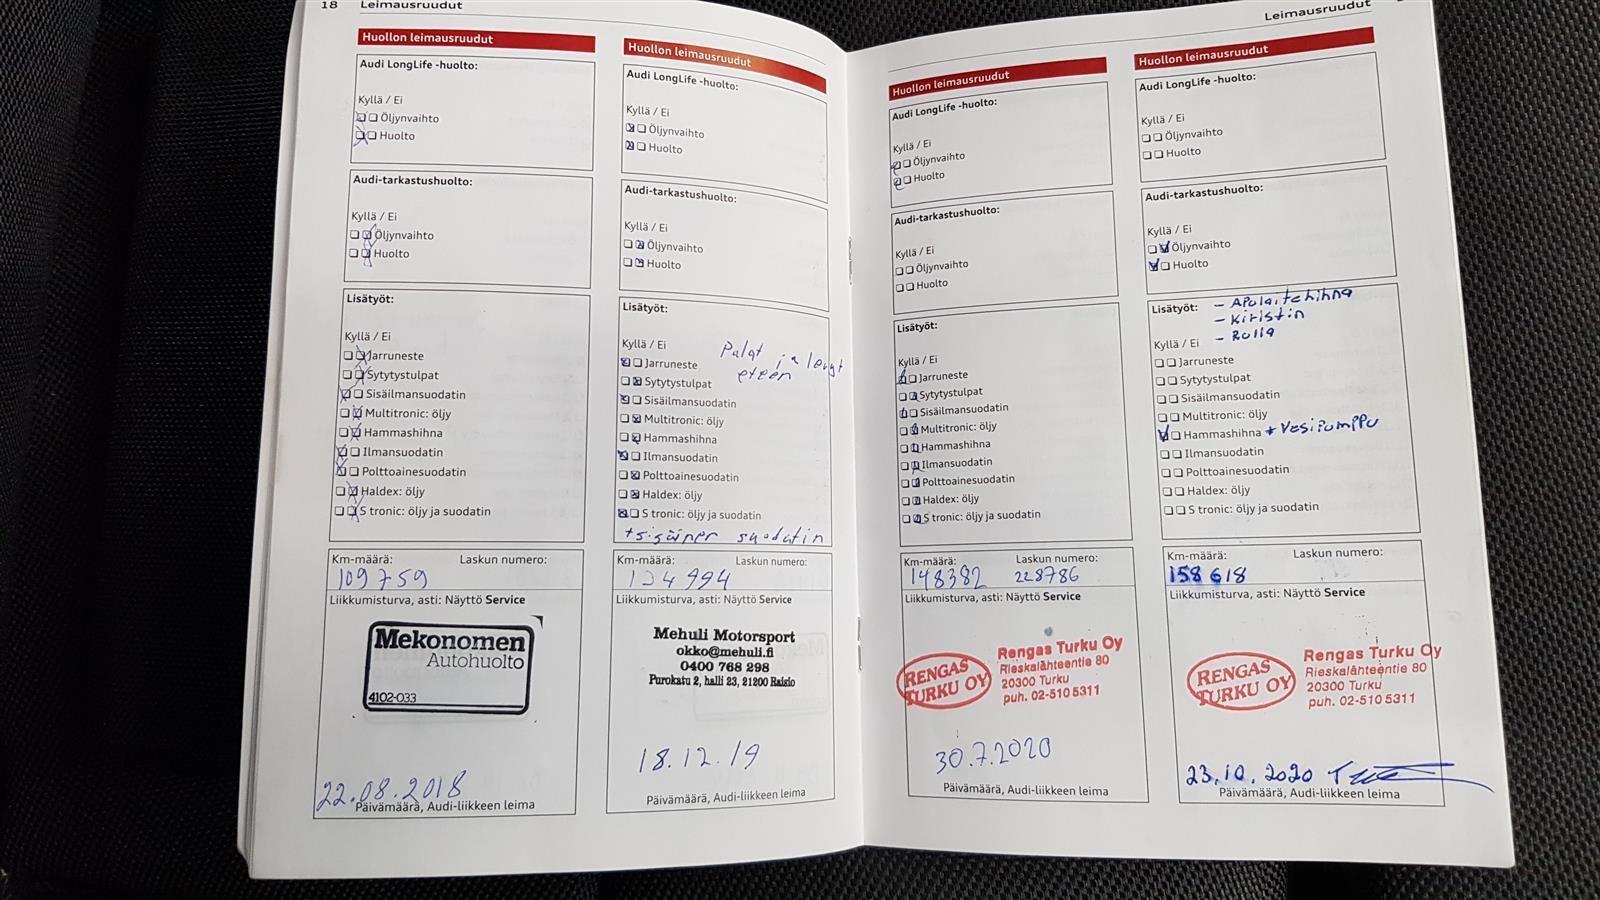 18 Leimausruudut
Huollon leimausruudut
Audi LongLife -huolto:
Kyllä / Ei
Öljynvaihto
Huolto
Audi-tarkastushuolto:
Kyllä / Ei
Öljynvaihto
Huolto
Lisätyöt:
Kyllä / Ei
Jarruneste
Sytytystulpat
Sisäilmansuodatin
Multitronic: öljy
Hammashihna
Ilmansuodatin
Polttoainesuodatin
Haldex: öljy
S tronic: öljy ja suodatin
Km-määrä: Laskun numero:
109759
Liikkumisturva, asti: Näyttö Service
Mekonomen
Autohuolto
4102-033
22.08.2018
Päivämäärä, Audi-liikkeen leima
Huollon leimausruudut
Audi LongLife -huolto:
Kyllä / Ei
Öljynvaihto
Huolto
Audi-tarkastushuolto:
Kyllä / Ei
Öljynvaihto
Huolto
Lisätyöt:
Kyllä / Ei
Palat ja levyt
eteen
Jarruneste
Sytytystulpat
Sisäilmansuodatin
Multitronic: öljy
Hammashihna
Ilmansuodatin
Polttoainesuodatin
Haldex: öljy
S tronic: öljy ja suodatin
suodatin
Km-määrä: Laskun numero:
134994
Liikkumisturva, asti: Näyttö Service
Mehuli Motorsport
okko@mehuli.fi
0400 768 298
Purokatu 2, halli 23, 21200 Raisio
18.12.19
Päivämäärä, Audi-liikkeen leima
Leimausruudut
Huollon leimausruudut
Audi LongLife -huolto:
Kyllä / Ei
Öljynvaihto
Huolto
Audi-tarkastushuolto:
Kyllä / Ei
Öljynvaihto
Huolto
Lisätyöt:
Kyllä / Ei
Jarruneste
Sytytystulpat
Sisäilmansuodatin
Multitronic: öljy
Hammashihna
Ilmansuodatin
Polttoainesuodatin
Haldex: öljy
S tronic: öljy ja suodatin
Km-määrä: Laskun numero:
148382 228786
Liikkumisturva, asti: Näyttö Service
RENGAS
TURKU OY
Rengas Turku Oy
Rieskalähteentie 80
20300 Turku
puh. 02-510 5311
30.7.2020
Päivämäärä, Audi-liikkeen leima
Huollon leimausruudut
Audi LongLife -huolto:
Kyllä / Ei
Öljynvaihto
Huolto
Audi-tarkastushuolto:
Kyllä / Ei
Öljynvaihto
Huolto
Lisätyöt: - Apulaitehihna
- Kiristin
Kyllä / Ei - Rulla
Jarruneste
Sytytystulpat
Sisäilmansuodatin
Multitronic: öljy
Hammashihna + Vesipumppu
Ilmansuodatin
Polttoainesuodatin
Haldex: öljy
S tronic: öljy ja suodatin
Km-määrä: Laskun numero:
158618
Liikkumisturva, asti: Näyttö Service
RENGAS
TURKU OY
Rengas Turku Oy
Rieskalähteentie 80
20300 Turku
puh. 02-510 5311
23.10.2020
Päivämäärä, Audi-liikkeen leima